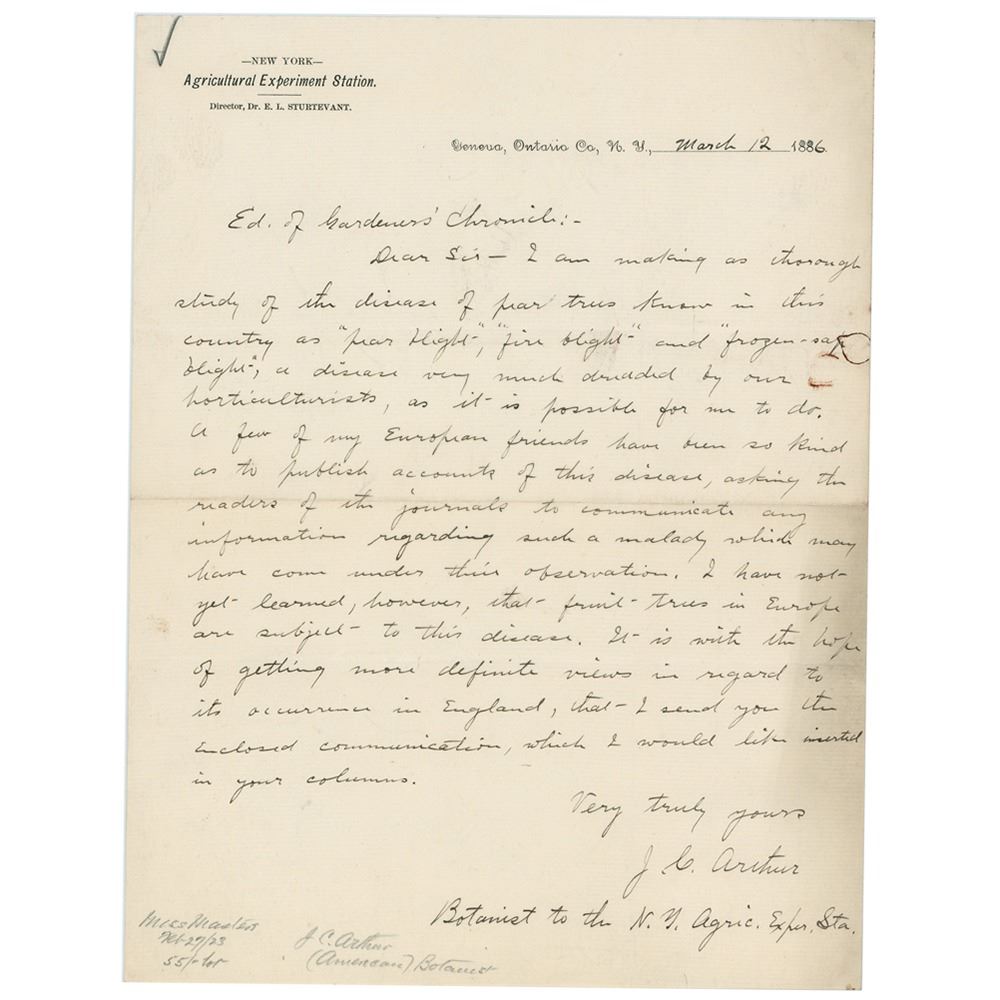 —NEW YORK—
Agricultural Experiment Station.
Director, Dr. E. L. STURTEVANT.
Geneva, Ontario Co, N. Y., March 12 1886
Ed. of Gardeners' Chronicle:-
Dear Sir — I am making as thorough
study of the disease of pear trees know in this
country as "pear blight", "fire blight" and "frozen-sap
blight", a disease very much dreaded by our
horticulturists, as it is possible for me to do.
A few of my European friends have been so kind
as to publish accounts of this disease, asking the
readers of the journals to communicate any
information regarding such a malady which may
have come under their observation. I have not
yet learned, however, that fruit trees in Europe
are subject to this disease. It is with the hope
of getting more definite views in regard to
its occurrence in England, that I send you the
enclosed communication, which I would like inserted
in your columns.
Very truly yours
J C. Arthur
Botanist to the N. Y. Agric. Exper. Sta.
Miss Masters
Feb 27/23
55/- lot
J C. Arthur
(American) Botanist